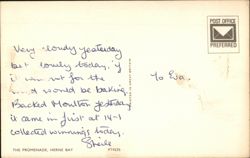 Very cloudy yesterday
but lovely today. If
it was not for the
wind would be baking
Backed Moulton yesterday
it came in first at 14-1
collected winnings today.
Sheila
To Eva.
POST OFFICE
PREFERRED
THE PROMENADE, HERNE BAY